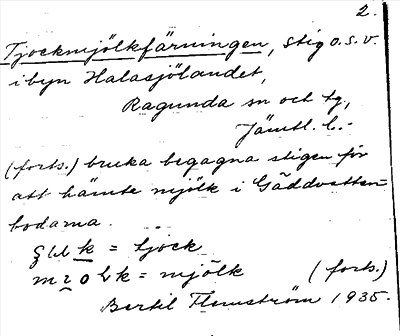 2.
Tjockmjölkfärningen, stig o.s.v.
i byn Halasjölandet,
Ragunda sn och tg,
Jämtl. l.-
(forts.) bruka begagna stigen för
att hämte mjölk i Gäddvatten-
bodarna.
k = tjock
k = mjölk (forts.)
Bertil Flemström 1935.